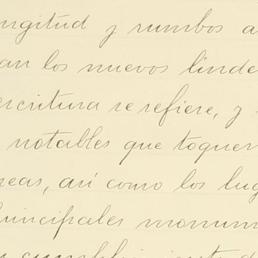 ongitud y rumbos a
an los nuevos linde
escritura se refiere, y
notables que toquen
reas, así como los lug
rincipales monum
cumplimiento d